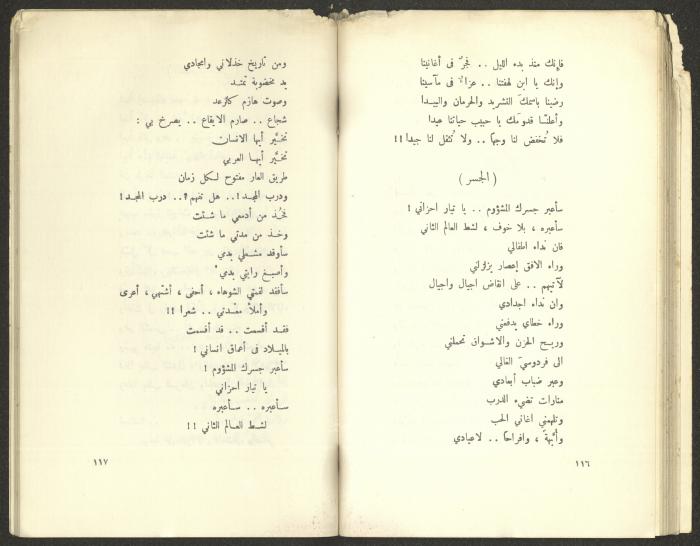 فإنك منذ بدء الليل .. فجرٌ فى أغانينا
وإنك يا ابن لهفتنا .. عزاءٌ فى مآسينا
رضينا باسمك التشريد والحرمان والبيدا
وأعلنّا قدومك يا حبيب حياتنا عيدا
فلا تُخفض لنا وجهاً .. ولا تُثقل لنا جيدا !!
( الجسر )
سأعبر جسرك المشؤوم .. يا تيار احزاني !
سأعبره ، بلا خوف ، لشط العالم الثاني
فان نداء اطفالي
وراء الافق إعصار يزلزلني
لآتيهم .. على انقاض اجيال واجيال
وان نداء اجدادي
وراء خطاي يدفعني
وريح الحزن والاشواق تحملني
الى فردوسيَ الغالي
وعبر ضباب أبعادي
منارات تضيء الدرب
وتلهمني اغاني الحب
وأبّهةً ، وافراحاً .. لاعيادي
١١٦
ومن تاريخ خذلاني وامجادي
يد مخضوبة تمتد
وصوت هازم كالرعد
شجاع .. صارم الايقاع .. يصرخ بي :
تخيَّر أيها الانسان
تخيَّر أيها العربي
طريق العار مفتوح لكل زمان
ودرب المجد !.. هل تفهم ؟.. درب المجد !
فخُذ من أدمعي ما شئت
وخذ من مدتي ما شئت
سأوقد مشعلي بدمي
وأصبغ رايتي بدمي
سأفقد لقمتي الشوهاء ، أحفى ، أشتهي ، أعرى
وأملأ معدتي .. شعرا !!
فقد أقسمت .. قد أقسمت
بالميلاد فى أعماق انساني !
سأعبر جسرك المشؤوم !
يا تيار احزاني
سأعبره .. سأعبره
لشط العالم الثاني !!
١١٧